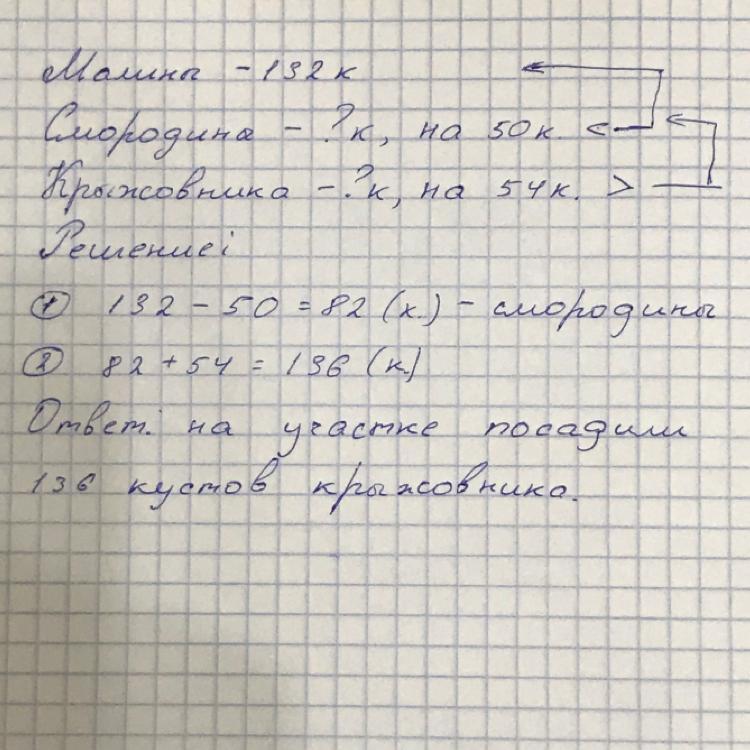 Малины - 132 к
Смородина - ? к, на 50 к. <
Крыжовника - ? к, на 54 к. >
Решение:
① 132 - 50 = 82 (к.) - смородины
② 82 + 54 = 136 (к.)
Ответ: на участке посадили
136 кустов крыжовника.